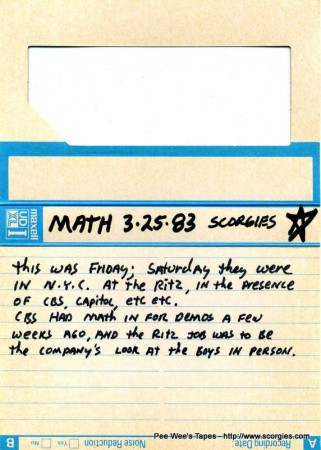 maxell
UD
XL I
MATH 3·25·83 SCORGIES
this was FRIDAY; SATURDAY they were
IN N.Y.C. At the Ritz, IN the PRESENCE
OF CBS, CAPITOL, etc etc.
CBS HAD MATH IN FOR DEMOS A FEW
WEEKS AGO, AND the Ritz JOB WAS to BE
the COMPANY'S LOOK At the BOYS IN PERSON.
B Noise Reduction □ Yes □ No Recording Date A
Pee Wee's Tapes - http://www.scorgies.com